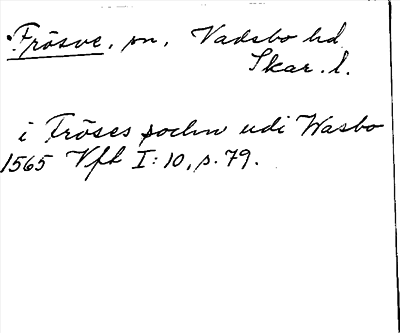 Frösve, sn, Vadsbo hd
Skar. l.
i Fröses sochn udi Wasbo
1565 Vfh I:10, s. 79.